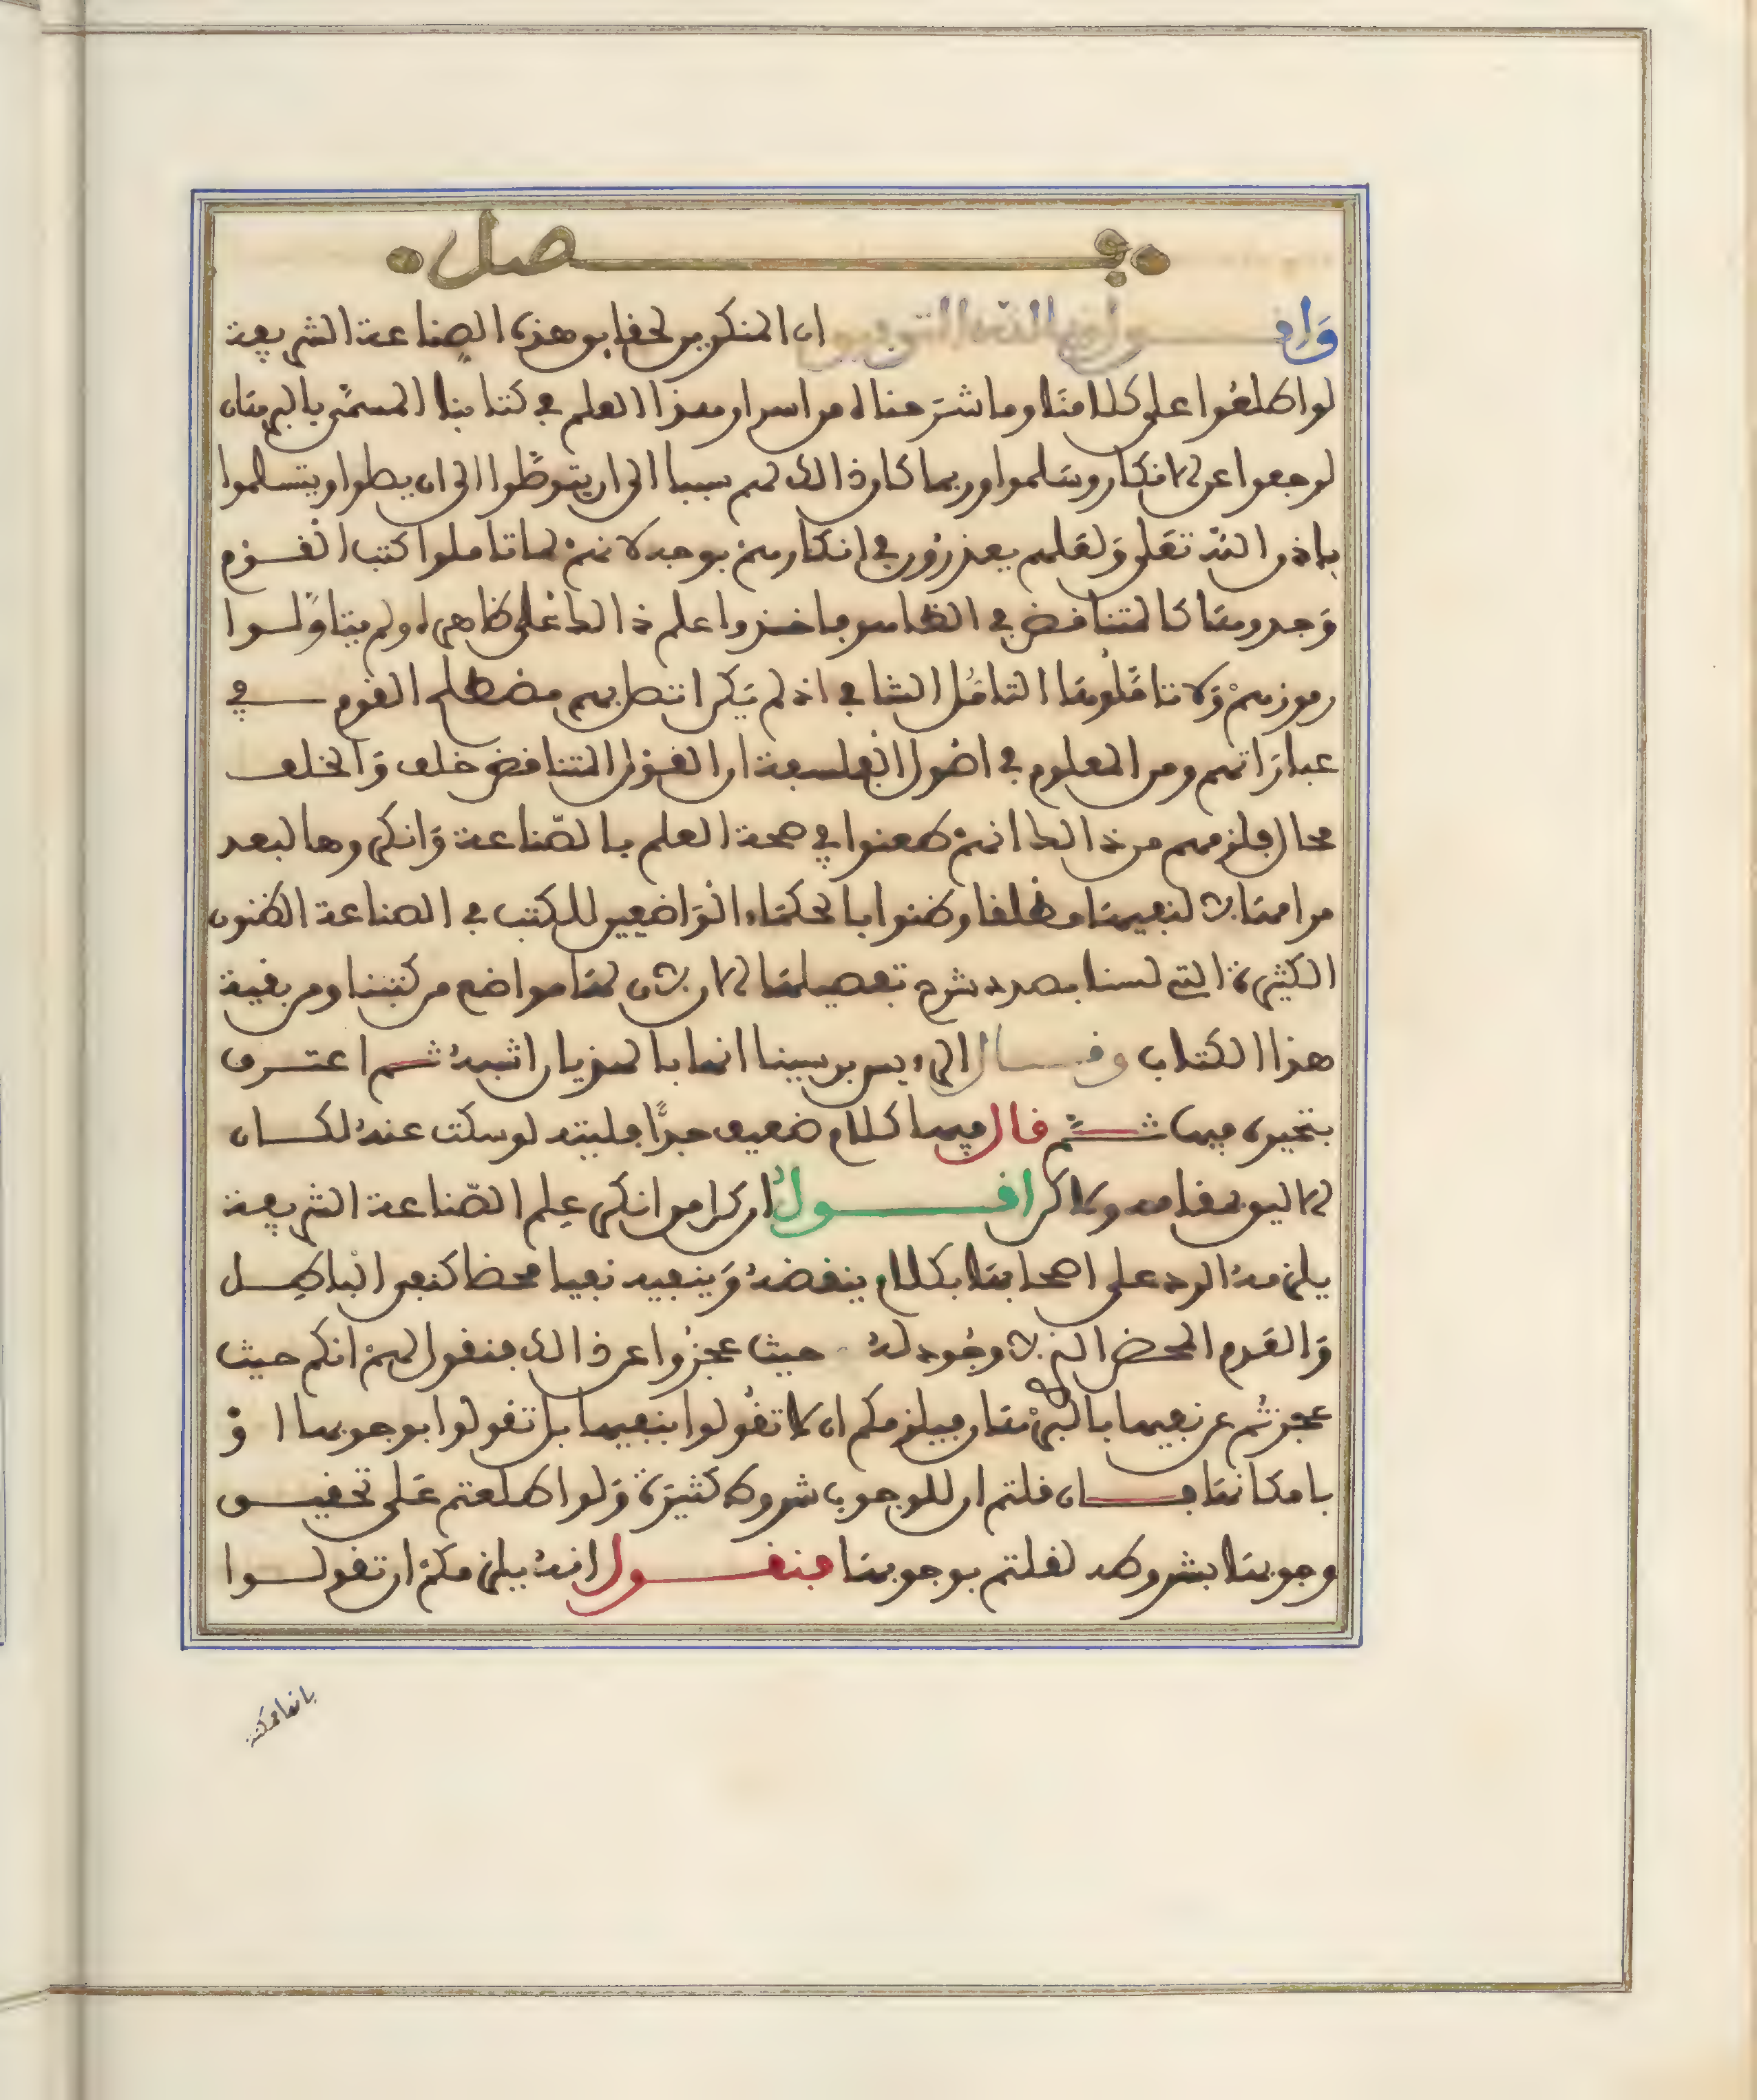 فصل
واقول وبالله التوفيق ان المنكرين لحقايق هذه الصناعة الشريفة
لو اطلعوا على كلامنا وما شرحناه من اسرار هذا العلم في كتابنا المسمى بالبرهان
لرجعوا عن الانكار وسلموا وربما كان ذالك لهم سببا الى ان يتوصلوا الى ان يصلوا ويتسلموا
باذن الله تعلى ولعلهم يعذرون في انكارهم بوجه لانهم لما تاملوا كتب القوم
وجدوها كالمتناقض في الظاهر فاخذوا علم ذالك على ظاهره ولم يتاولوا
رموزهم ولا تاملوها التامل الشافي اذ لم يكن اتصل بهم مصطلح القوم في
عباراتهم ومن المعلوم في اصول الفلسفة ان القول المتناقض خلف والخلف
محال فلزمهم من ذالك انهم طعنوا في صحة العلم بالصناعة وانكروها لبعد
مرامها لا لنفيها مطلقا وظنوا بالحكماء الواضعين للكتب في الصناعة الظنون
الكثيرة التي لسنا بصدد شرح تفصيلها الان لان لها مواضع من كتبنا ومن بقية
هذا الكتاب وقال الرءيس بن سينا انها بالهذيان اشبه ثم اعترف
بتحيره فيها ثم قال فيها كلام ضعيف جدا فليته لو سكت عنه لكان
الاليق بمقامه ولاكن اقول ان كل من انكر علم الصناعة الشريفة
يلزمه الرد على اصحابها بكلام ينقضه وينفيه نفيا محضا كنفي الباطل
والعدم المحض الذي لا وجود له حيث عجزوا عن ذالك فنقول لهم انكم حيث
عجزتم عن نفيها بالبرهان فيلزمكم ان لا تقولوا بنفيها بل تقولوا بوجوبها او
بامكانها فان قلتم ان للوجوب شروط كثيرة ولو اطلعتم على تحقيق
وجوبها بشروطه لقلتم بوجوبها فنقول انه يلزمكم ان تقولوا
بانها ممكنة